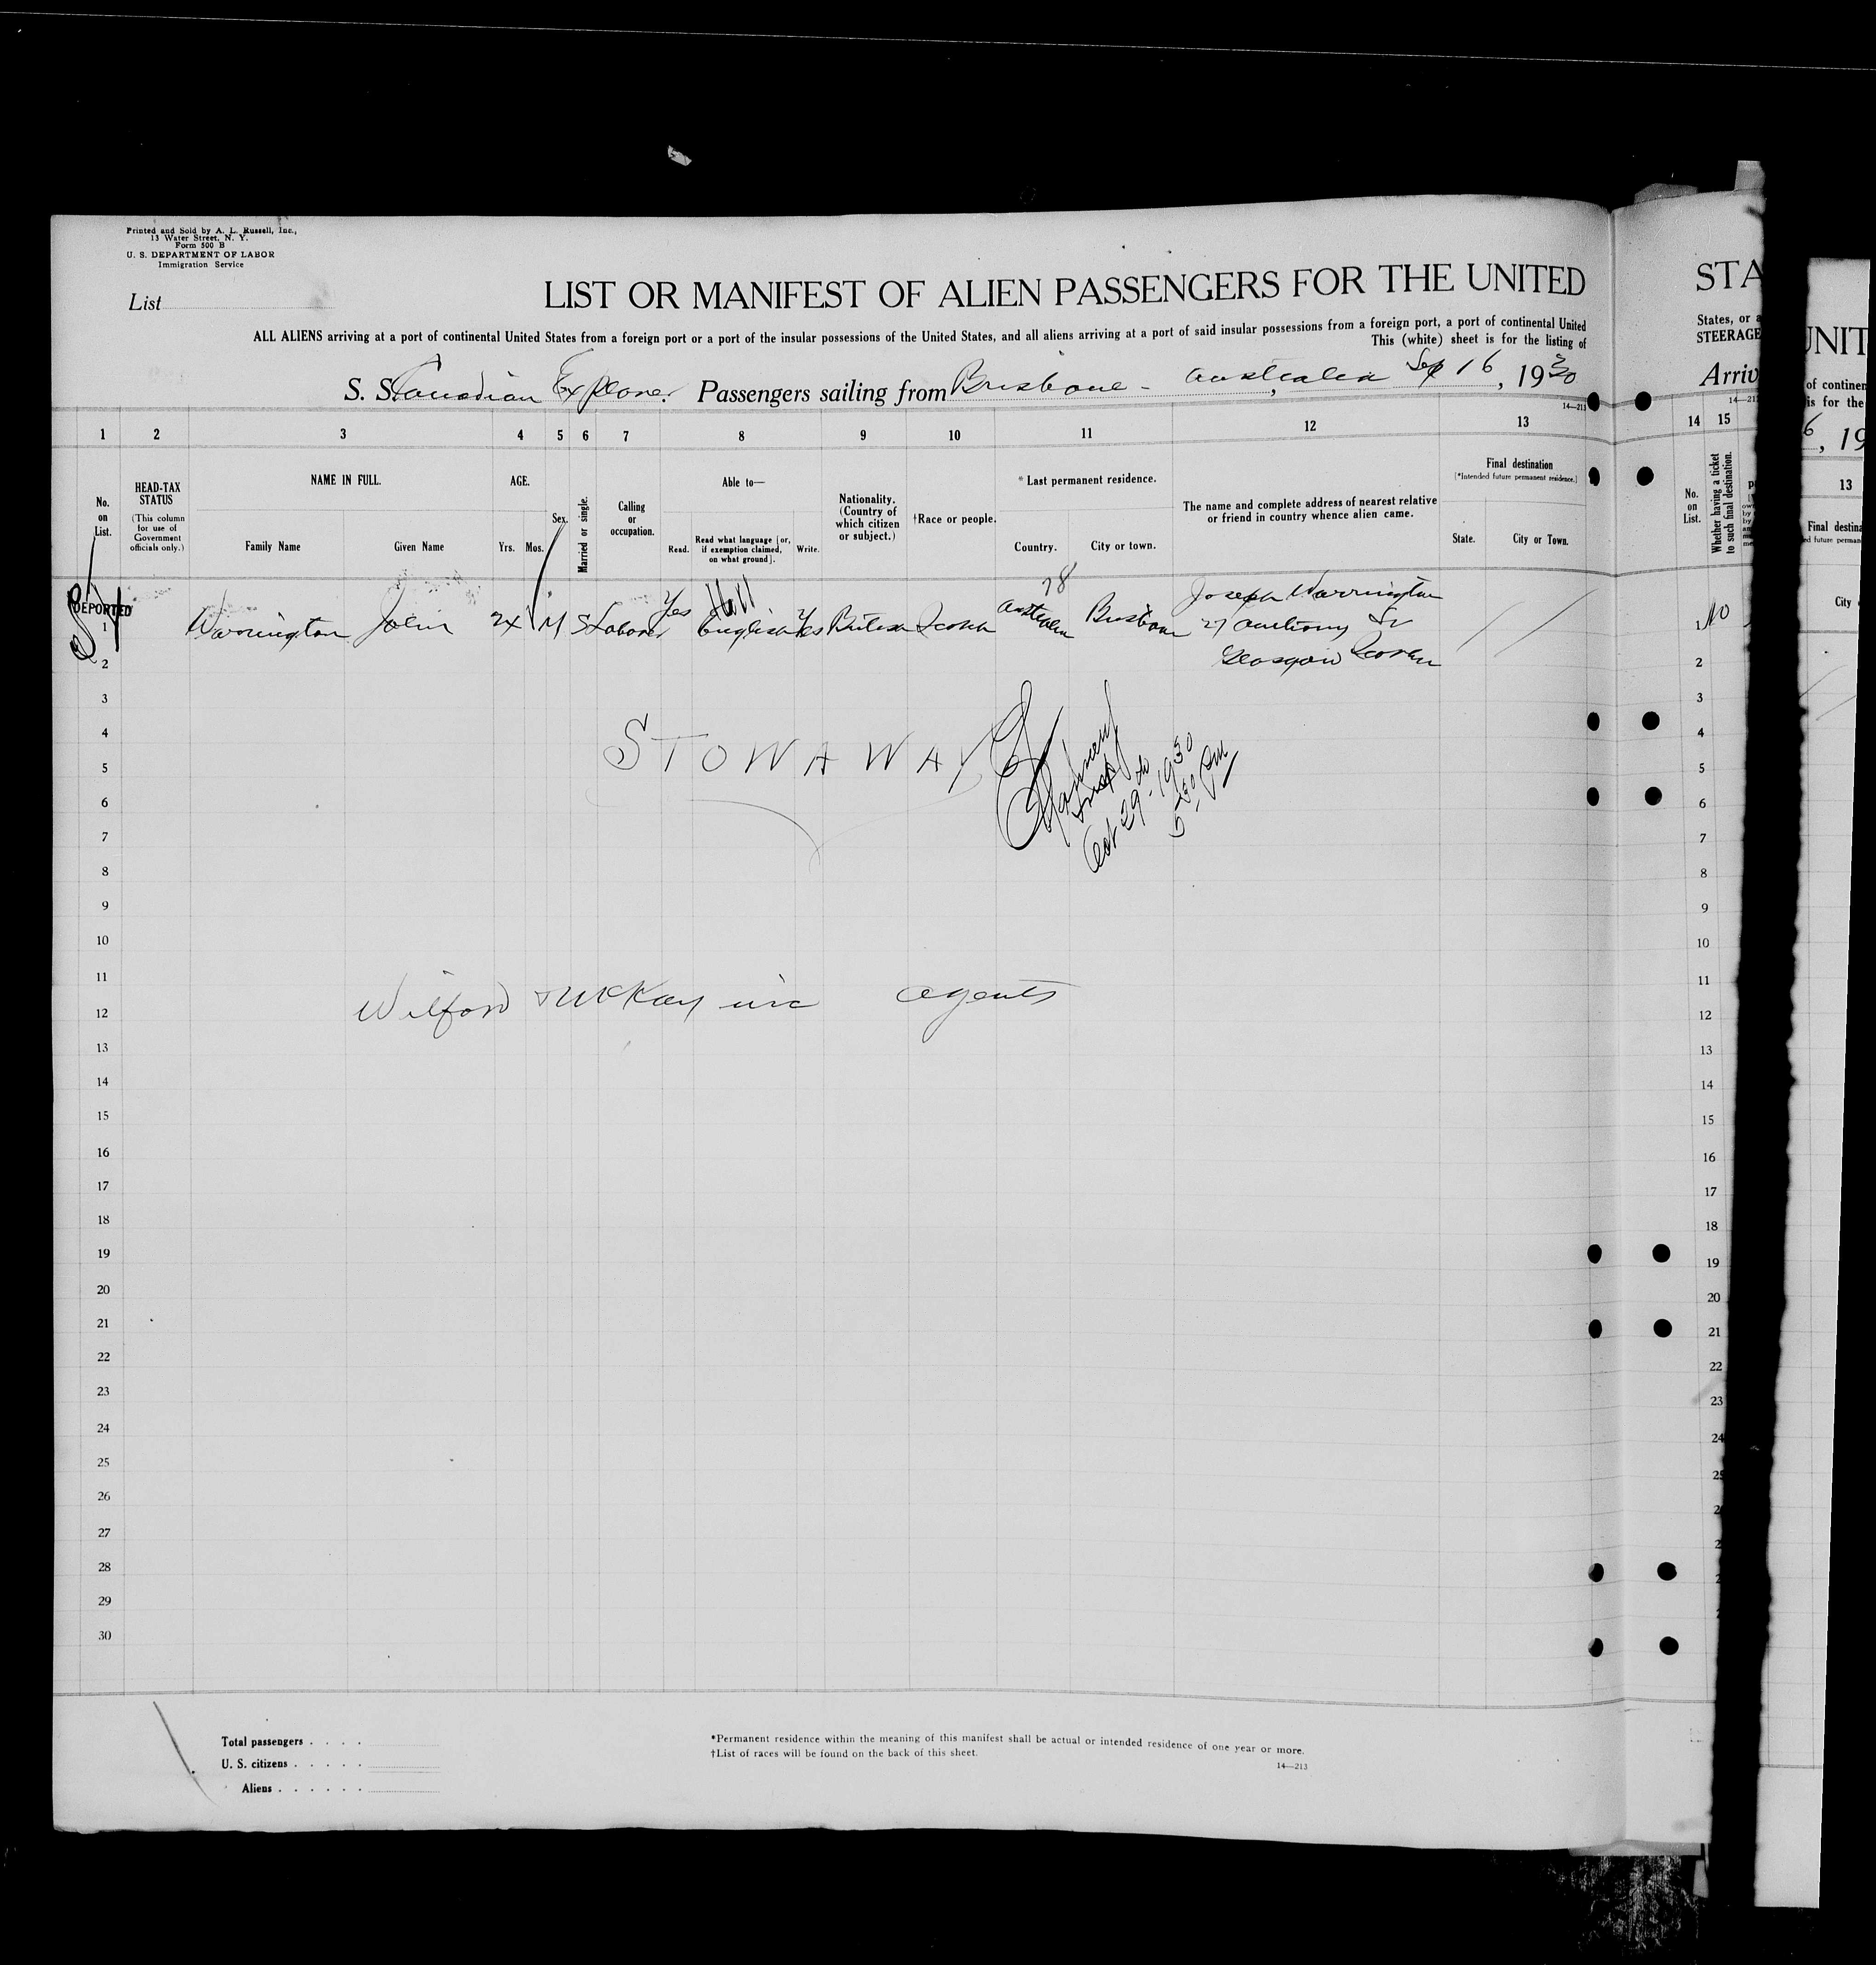 Printed and Sold by A. L. Russell, Inc.,
13 Water Street, N. Y.
Form 500 B
U. S. DEPARTMENT OF LABOR
Immigration Service
List
LIST OR MANIFEST OF ALIEN PASSENGERS FOR THE UNITED
ALL ALIENS arriving at a port of continental United States from a foreign port or a port of the insular possessions of the United States, and all aliens arriving at a port of said insular possessions from a foreign port, a port of continental United
This (white) sheet is for the listing of
S. S. Canadian Explorer Passengers sailing from Brisbane - Australia, Sep 16, 1930
14—213
1 2 3 4 5 6 7 8 9 10 11 12 13
No. on List.
HEAD-TAX STATUS
(This column for use of Government officials only.)
NAME IN FULL.
Family Name Given Name
AGE.
Yrs. Mos.
Sex.
Married or single.
Calling or occupation.
Able to—
Read. Read what language [or, if exemption claimed, on what ground]. Write.
Nationality. (Country of which citizen or subject.)
†Race or people.
*Last permanent residence.
Country. City or town.
The name and complete address of nearest relative or friend in country whence alien came.
Final destination
[*Intended future permanent residence.]
State. City or Town.
DEPORTED
78
1 Warrington John M S Laborer Yes English Yes British Scotch Australia Brisbane Joseph Warrington
27 Anthony St
Glasgow
2
3
4
STOWAWAY
5
Oct 29 - 1930
6
7
8
9
10
11
Wilford & McKay inc agents
12
13
14
15
16
17
18
19
20
21
22
23
24
25
26
27
28
29
30
Total passengers
U. S. citizens
Aliens
*Permanent residence within the meaning of this manifest shall be actual or intended residence of one year or more.
†List of races will be found on the back of this sheet.
14—213
STA
States, or a
STEERAGE
Arriv
14—213
14 15
No. on List.
Whether having a ticket to such final destination.
1 No
2
3
4
5
6
7
8
9
10
11
12
13
14
15
16
17
18
19
20
21
22
23
24
UNIT
of continen
is for the
6, 19
13
Final destina
ed future perman
City